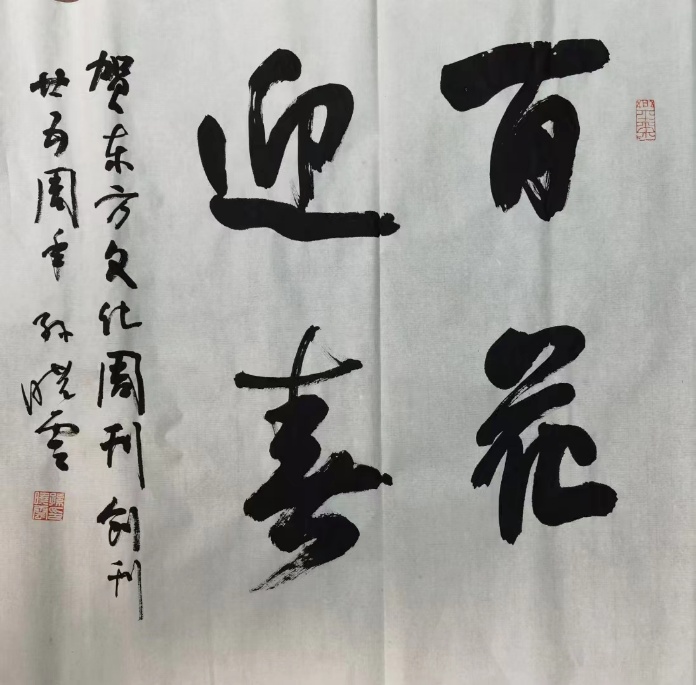 百花
迎春
贺东方文化周刊创刊
廿五周年 孙晓云